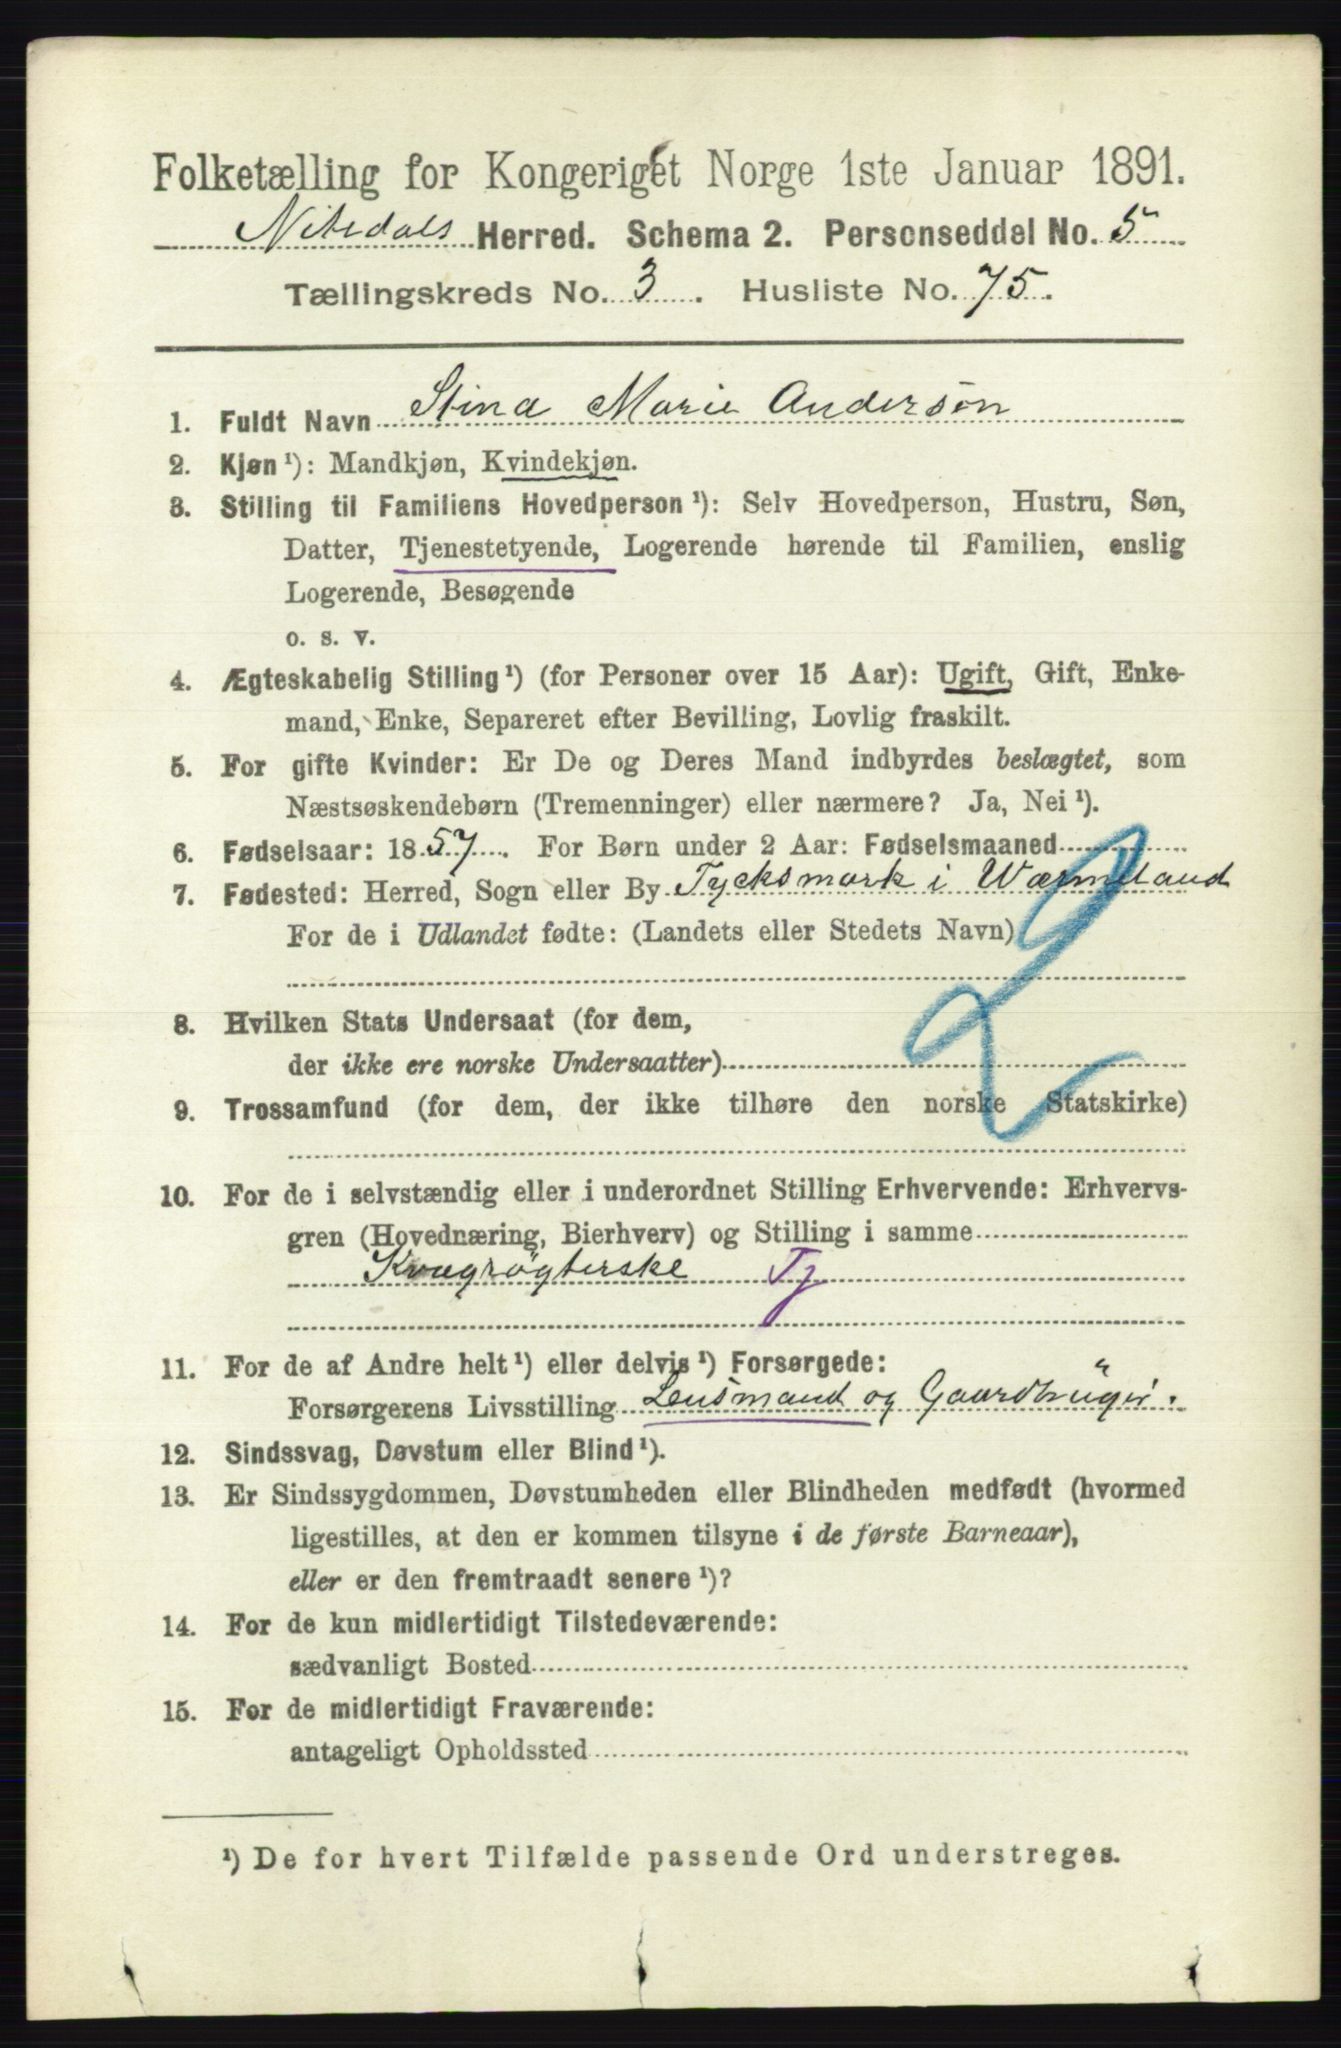 Folketælling for Kongeriget Norge 1ste Januar 1891.
Nitedals Herred. Schema 2. Personseddel No. 5
Tællingskreds No. 3. Husliste No. 75.
1. Fuldt Navn Stina Marie Anderson
2. Kjøn¹): Mandkjøn, Kvindekjøn.
3. Stilling til Familiens Hovedperson¹): Selv Hovedperson, Hustru, Søn,
Datter, Tjenestetyende, Logerende hørende til Familien, enslig
Logerende, Besøgende
o. s. v.
4. Ægteskabelig Stilling¹) (for Personer over 15 Aar): Ugift, Gift, Enke-
mand, Enke, Separeret efter Bevilling, Lovlig fraskilt.
5. For gifte Kvinder: Er De og Deres Mand indbyrdes beslægtet, som
Næstsøskendebørn (Tremenninger) eller nærmere? Ja, Nei¹).
6. Fødselsaar: 1857. For Børn under 2 Aar: Fødselsmaaned
7. Fødested: Herred, Sogn eller By Tycksmark i Wærmeland
For de i Udlandet fødte: (Landets eller Stedets Navn)
8. Hvilken Stats Undersaat (for dem,
der ikke ere norske Undersaatter)
9. Trossamfund (for dem, der ikke tilhøre den norske Statskirke)
10. For de i selvstændig eller i underordnet Stilling Erhvervende: Erhvervs-
gren (Hovednæring, Bierhverv) og Stilling i samme
Kvægrögterske Tj
11. For de af Andre helt¹) eller delvis¹) Forsørgede:
Forsørgerens Livsstilling Lensmand og Gaardbruger.
12. Sindssvag, Døvstum eller Blind¹).
13. Er Sindssygdommen, Døvstumheden eller Blindheden medfødt (hvormed
ligestilles, at den er kommen tilsyne i de første Barneaar),
eller er den fremtraadt senere¹)?
14. For de kun midlertidigt Tilstedeværende:
sædvanligt Bosted
15. For de midlertidigt Fraværende:
antageligt Opholdssted
¹) De for hvert Tilfælde passende Ord understreges.